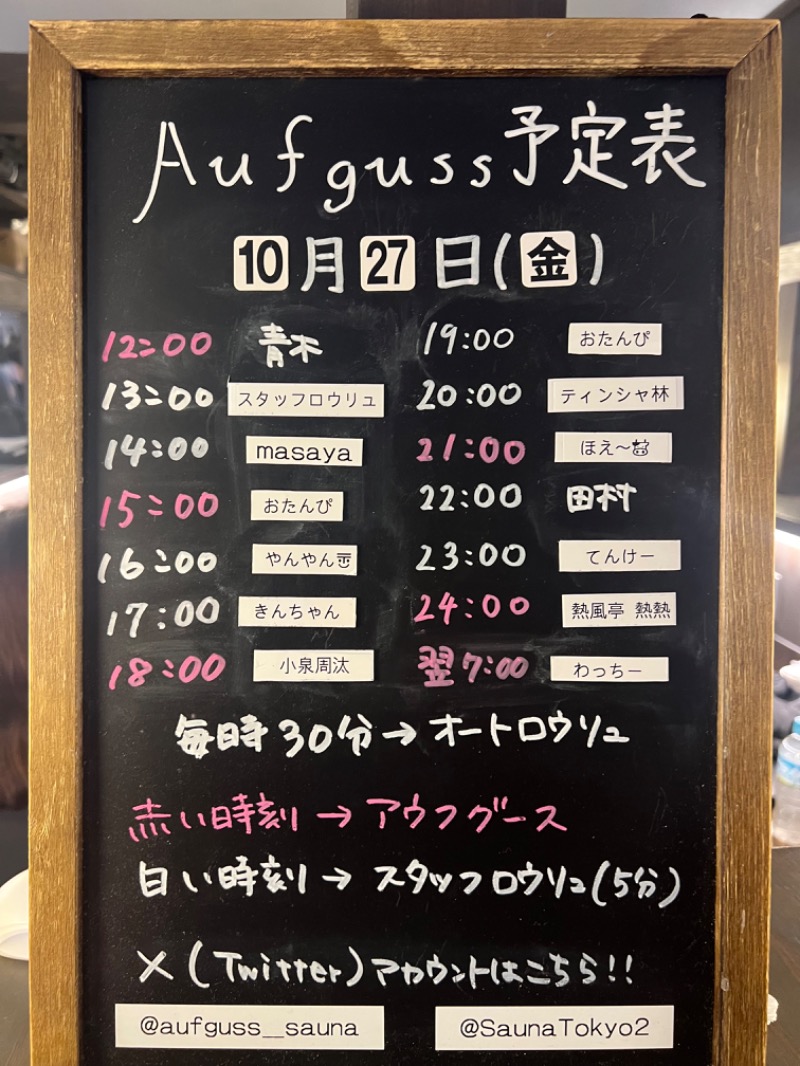 Aufguss予定表
10月27日(金)
12:00 青木
13:00 スタッフロウリュ
14:00 masaya
15:00 おたんぴ
16:00 やんやん
17:00 きんちゃん
18:00 小泉周汰
19:00 おたんぴ
20:00 ティンシャ林
21:00 ほえ〜
22:00 田村
23:00 てんけー
24:00 熱風亭 熱熱
翌7:00 わっちー
毎時30分→オートロウリュ
赤い時刻→アウフグース
白い時刻→スタッフロウリュ(5分)
X(Twitter)アカウントはこちら!!
@aufguss__sauna
@SaunaTokyo2